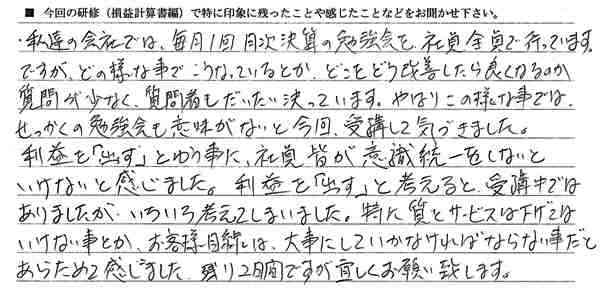 ■ 今回の研修（損益計算書編）で特に印象に残ったことや感じたことなどをお聞かせ下さい。
・私達の会社では、毎月1回月次決算の勉強会を社員全員で行っています。
ですが、どの様な事でこうなっているとか、どこをどう改善したら良くなるのか
質問が少なく、質問者もだいたい決っています。やはりこの様な事では、
せっかくの勉強会も意味がないと今回、受講して気づきました。
利益を「出す」とゆう事に、社員皆が意識統一をしないと
いけないと感じました。利益を「出す」と考えると、受講中では
ありましたが、いろいろ考えてしまいました。特に質とサービスは下げては
いけない事とか、お客様目線は、大事にしていかなければならない事だと
あらためて感じました。残り2日間ですが宜しくお願い致します。